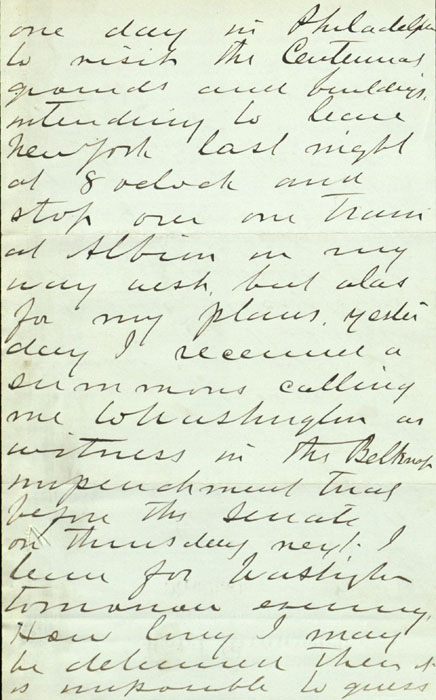 one day in Philadelphia
to visit the Centennial
grounds and buildings,
intending to leave
New York last night
at 8 oclock and
stop over one train
at Albion on my
way west, but alas
for my plans, yester
day I received a
summons calling
me to Washington as
witness in the Belknap
impeachment trial
before the Senate
on thursday next. I
leave for Washington
tomorrow evening.
How long I may
be detained there it
is impossible to guess